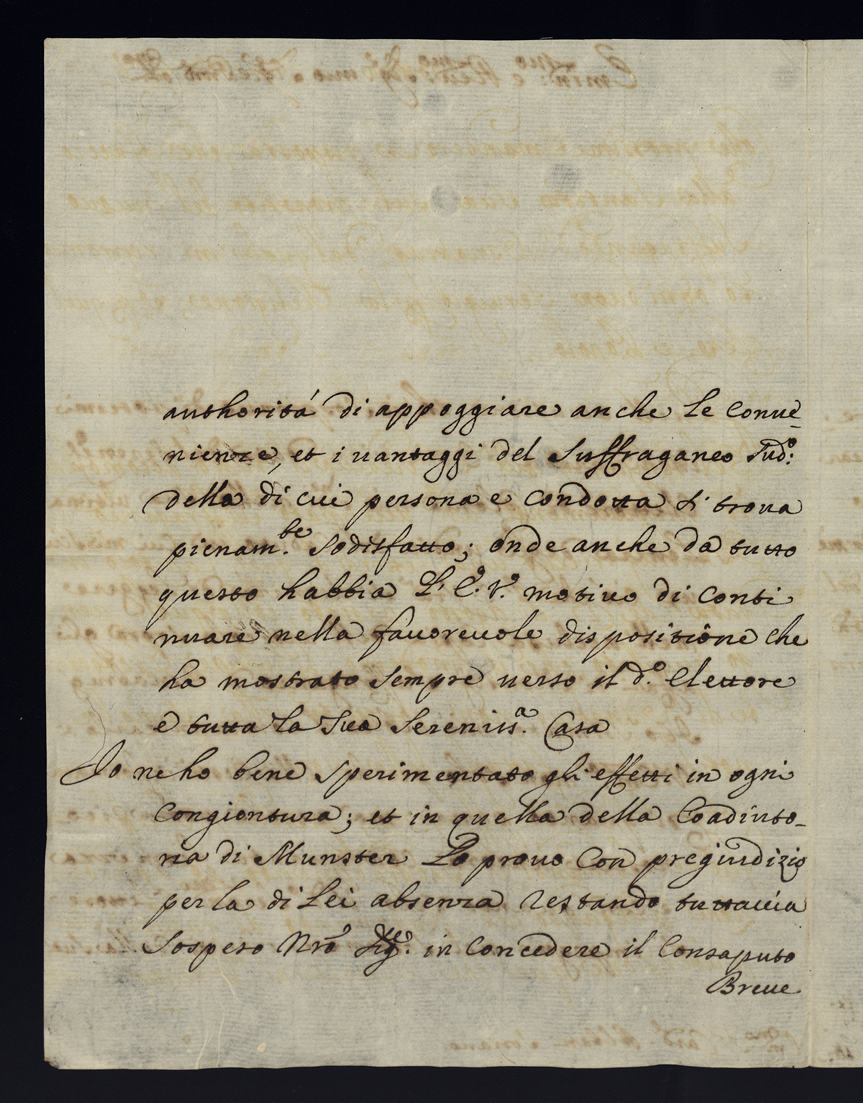 authoritá di appoggiare anche le conue-
nienze, et i uantaggi del Suffraganeo sud.º:
della di cui persona e condotta si troua
pienam.te sodisfatto; onde anche da tutto
questo habbia L' E.ª V.ª motiuo di conti
nuare nella fauoreuole dispositione che
ha mostrato sempre uerso il d.º Elettore
e tutta la sua Sereniss.ª Casa
Io ne ho bene sperimentato gli effetti in ogni
congiontura; et in quella della Coadiuto-
ria di Munster lo prouo con pregiudizio
per la di Lei absenza restando tuttauia
sospeso Nrõ Sig.re in concedere il consaputo
Breue